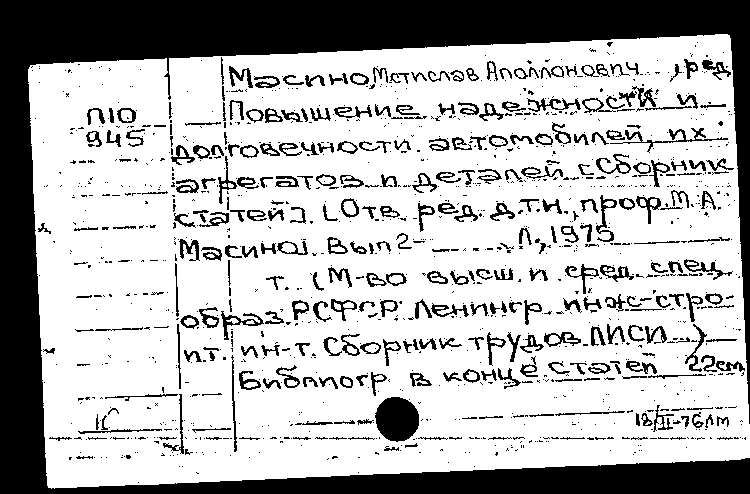 Масино, Мстислав Аполлонович, ред
П10
945
Повышение надежности и
долговечности автомобилей, их
агрегатов и деталей [Сборник
статей]. [Отв. ред. д.т.н., проф. М.А.
Масино]. Вып 2- Л., 1975
т. (М-во высш. и сред. спец.
образ. РСФСР. Ленингр. инж-стро-
ит. ин-т. Сборник трудов ЛИСИ )
Библиогр в конце статей 22см
18/II-76 лт